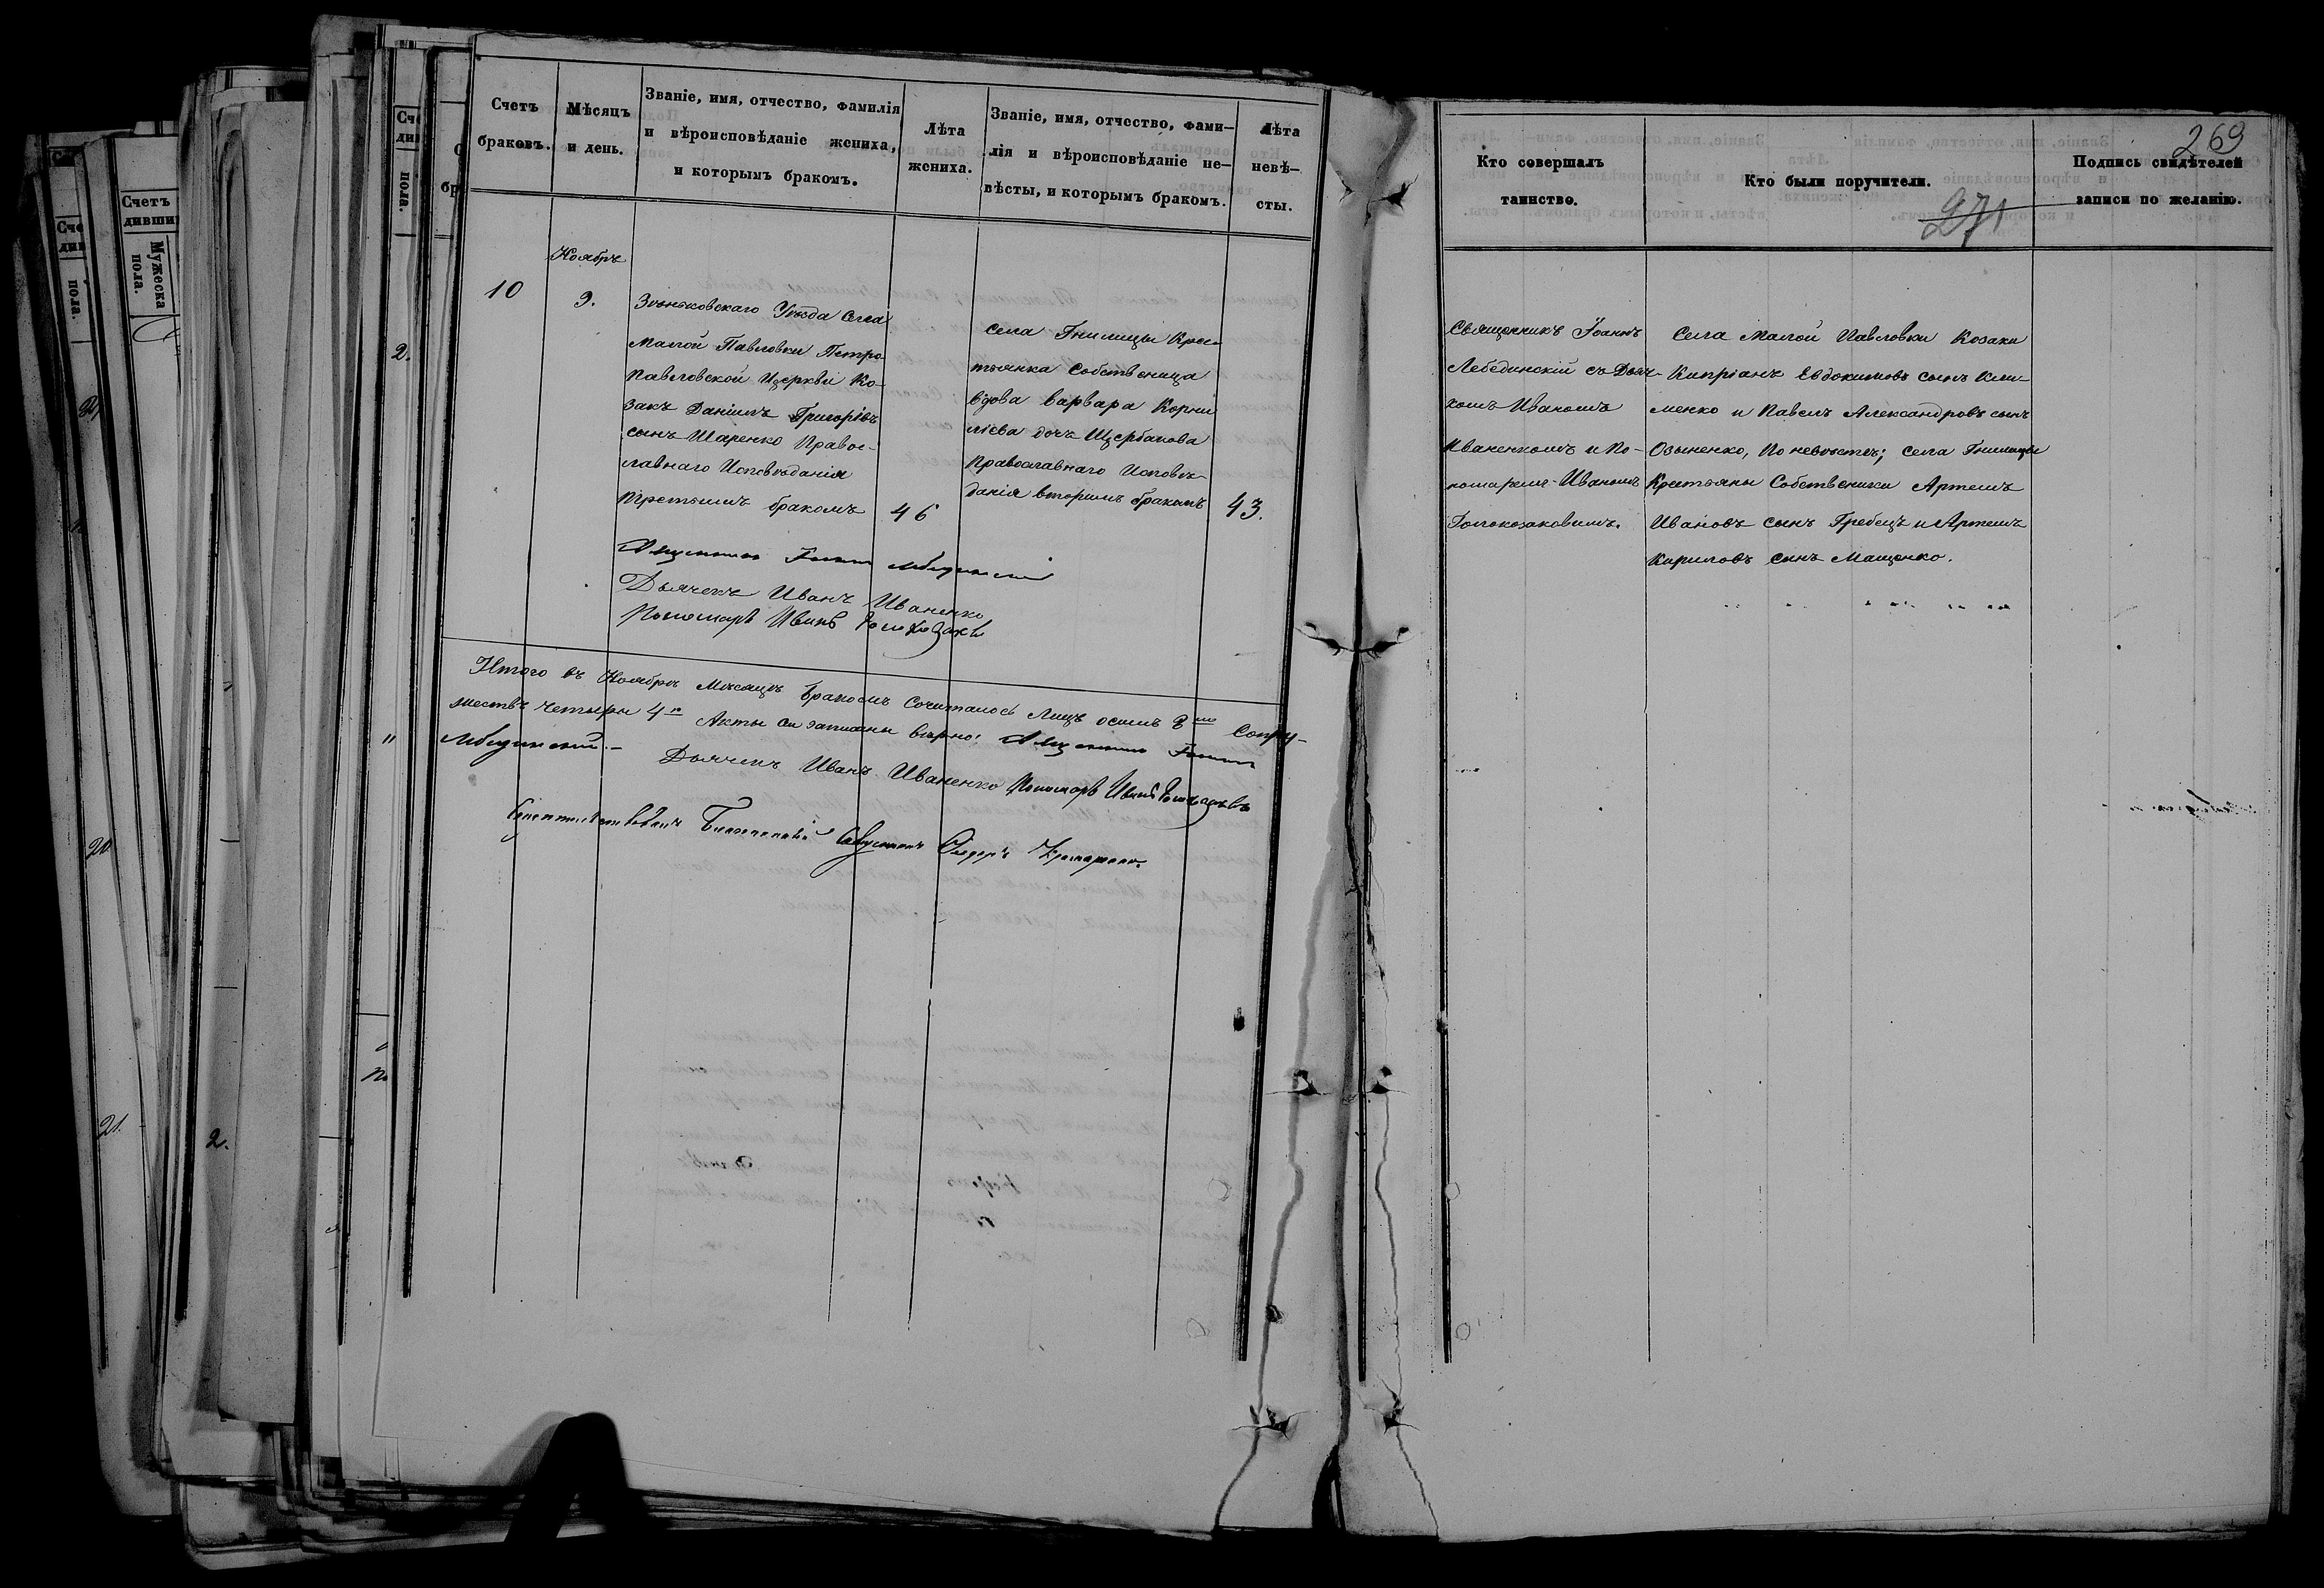 Счетъ
браковъ.
Мѣсяцъ
и день.
Званіе, имя, отчество, фамилія
и вѣроисповѣданіе жениха,
и которымъ бракомъ.
Лѣта
жениха.
Званіе, имя, отчество, фами—
лія и вѣроисповѣданіе не—
вѣсты, и которымъ бракомъ.
Лѣта
невѣ—
сты.
Ноябрь
10
9.
Зѣньковскаго Уѣзда Села
Малой Павловки Петро
Павловской Церкви Ко-
закъ Даніилъ Григоріевъ
сынъ Шаренко Правос-
лавнаго Исповѣданія
третьимъ бракомъ
46
Села Гнилицы Крес-
тьянка Собственица
вдова Варвара Корни
ліева дочь Щербакова
Православнаго Исповѣ-
данія вторымъ бракомъ
43.
Священникъ Іоаннъ Лебединскій
Дьячекъ Иванъ Иваненко
Пономарь Иванъ
Итого въ Ноябрѣ Мѣсяцѣ бракомъ Сочиталось Лицъ осемъ 8 Супру-
жествъ четыри 4 Акты си записаны вѣрно: Священникъ Іоаннъ
Лебединскій.—
Дьячекъ Иванъ Иваненко Пономарь Иванъ
Благочинный Священникъ
269
271
Кто совершалъ
таинство.
Кто были поручители.
Подпись свидѣтелей
записи по желанію.
Священникъ Іоаннъ
Лебединскій съ Дьяч-
комъ Иваномъ
Иваненкомъ и По-
номаремъ Иваномъ
Голокозаковимъ.
Села Малой Павловки Козаки
Кипріанъ Евдокимовъ сынъ Кли-
менко и Павелъ Александровъ сынъ
По невѣстѣ; села Гнилицы
Крестьяны Собственики Артемъ
Ивановъ сынъ Гребецъ и Артемъ
Кириловъ сынъ Мащенко.
Счетъ
дивши
Мужеска
пола.
пола.
пола.
2.
20
21.
2.